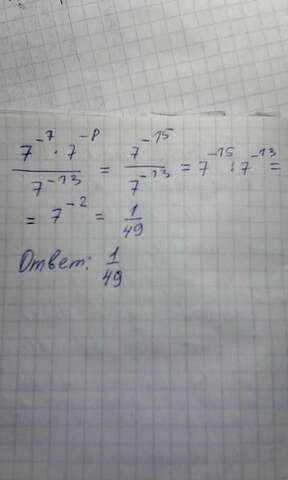 7⁻⁷ · 7⁻⁸ / 7⁻¹³ = 7⁻¹⁵ / 7⁻¹³ = 7⁻¹⁵ : 7⁻¹³ =
= 7⁻² = 1/49
Ответ: 1/49